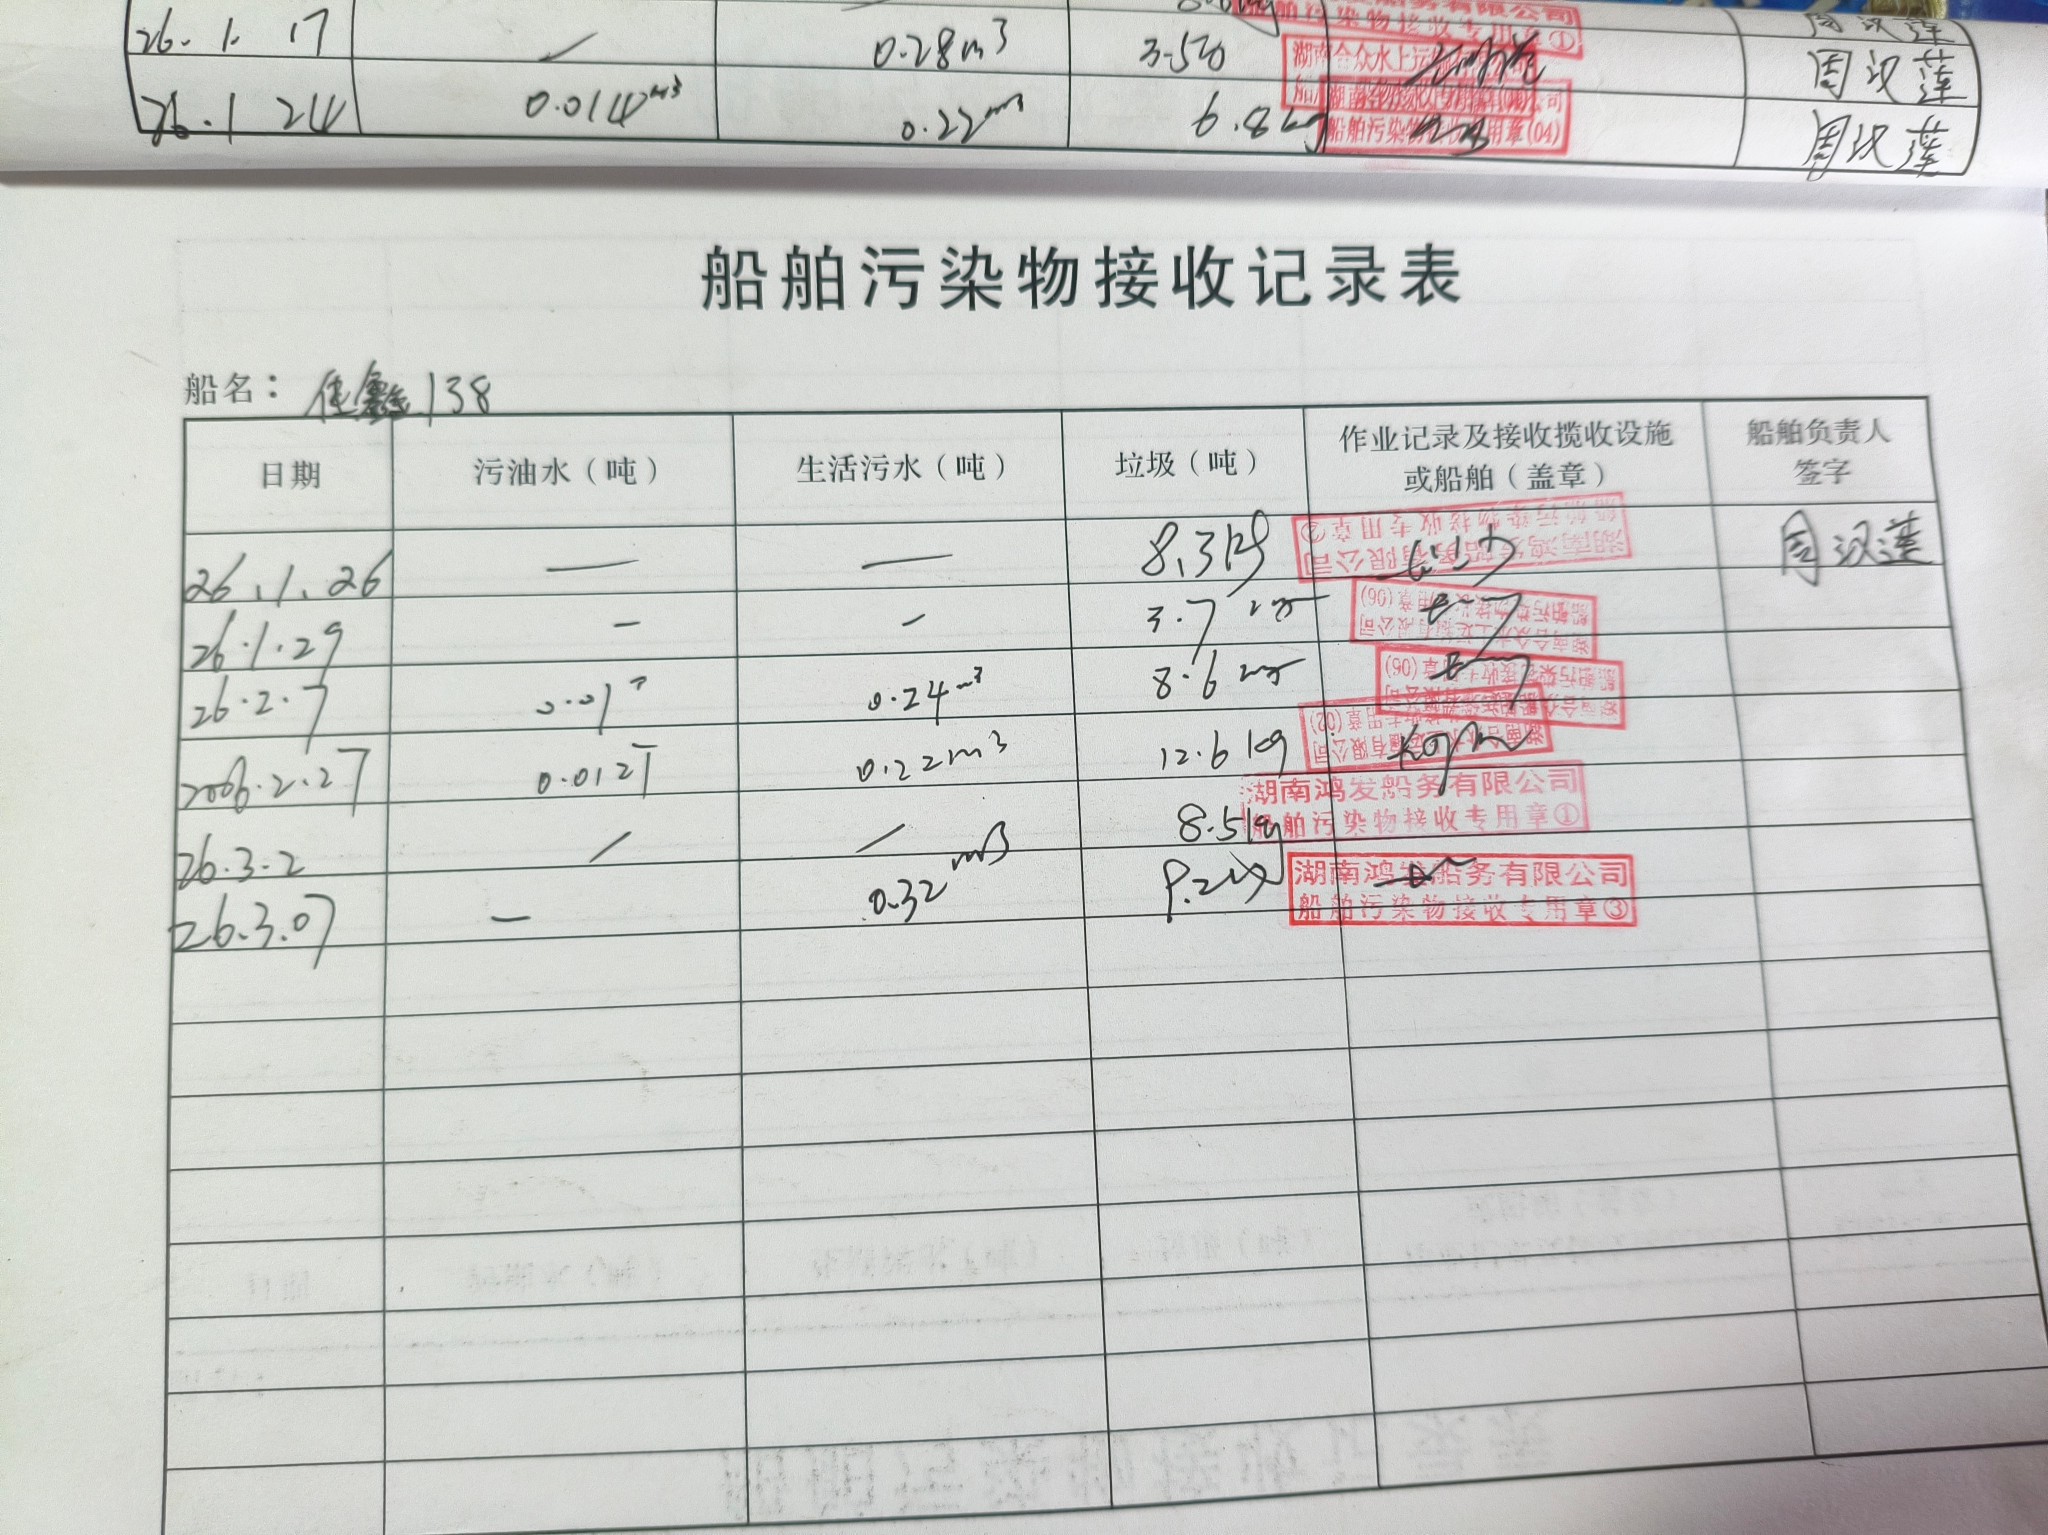 26.1.17 / 0.28m³ 3.5 周汉莲
26.1 24 0.014m³ 0.22m³ 6.8kg 船舶污染物接收专用章(04) 周汉莲
船舶污染物接收记录表
船名： 138
日期 污油水（吨） 生活污水（吨） 垃圾（吨） 作业记录及接收揽收设施或船舶（盖章） 船舶负责人签字
26.1.26 — — 8.3kg 湖南鸿发船务有限公司 船舶污染物接收专用章② 周汉莲
26.1.29 - - 3.7kg (06)
26.2.7 0.01T 0.24m³ 8.6kg (06)
2026.2.27 0.012T 0.22m³ 12.6kg (02)
26.3.2 / / 8.5kg 湖南鸿发船务有限公司 船舶污染物接收专用章①
26.3.07 — 0.32m³ 9.2kg 湖南鸿发船务有限公司 船舶污染物接收专用章③